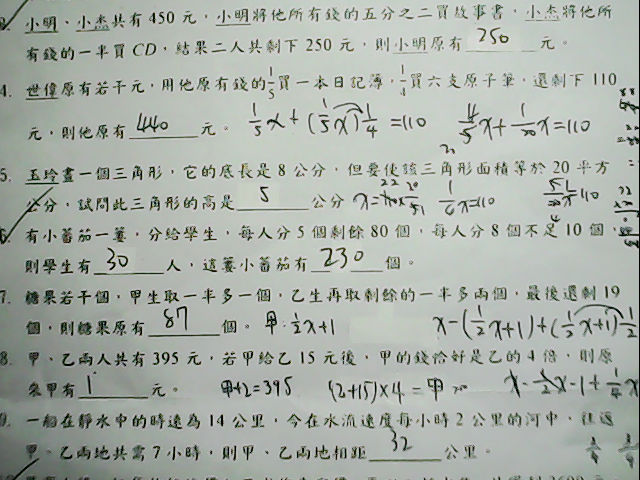 小明、小杰共有 450 元，小明將他所有錢的五分之二買故事書，小杰將他所
有錢的一半買 CD，結果二人共剩下 250 元，則小明原有 250 元。
4. 世偉原有若干元，用他原有錢的 1/5 買一本日記薄，1/4 買六支原子筆，還剩下 110
元，則他原有 440 元。 1/5 x + (1/5 x) 1/4 = 110 4/5 x + 1/20 x = 110
5. 玉玲畫一個三角形，它的底長是 8 公分，但要使該三角形面積等於 20 平方
公分，試問此三角形的高是 5 公分
6. 有小蕃茄一簍，分給學生，每人分 5 個剩餘 80 個，每人分 8 個不足 10 個，
則學生有 30 人，這簍小蕃茄有 230 個。
7. 糖果若干個，甲生取一半多一個，乙生再取剩餘的一半多兩個，最後還剩 19
個，則糖果原有 87 個。 甲: 1/2 x+1 x-(1/2 x+1)+(1/2 x+1) 1/2
8. 甲、乙兩人共有 395 元，若甲給乙 15 元後，甲的錢恰好是乙的 4 倍，則原
來甲有 1 元。 甲+2=395 (2+15)×4=甲
9. 一船在靜水中的時速為 14 公里，今在水流速度每小時 2 公里的河中，往返
甲、乙兩地共需 7 小時，則甲、乙兩地相距 32 公里。